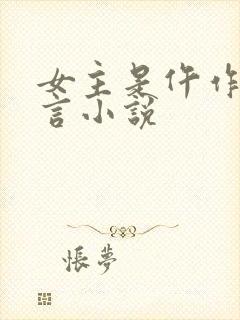 女主是仵作
言小說
悵夢